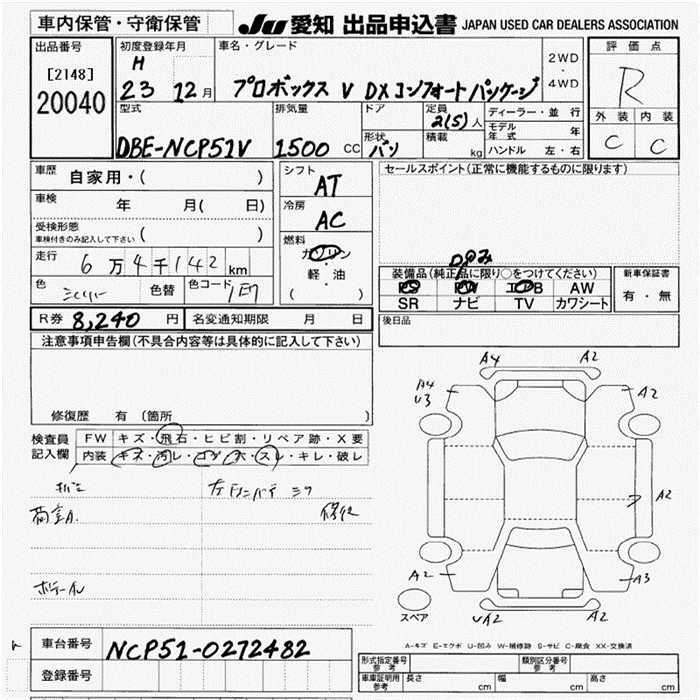 車内保管・守衛保管
JU 愛知 出品申込書 JAPAN USED CAR DEALERS ASSOCIATION
出品番号
[2148]
20040
初度登録年月
H
23 12月
車名・グレード
プロボックス V DXコンフォートパッケージ
2WD
・
4WD
評価点
R
外装 内装
C C
型式
DBE-NCP51V
排気量
1500 CC
ドア
形状
バン
定員
2(5)人
積載
kg
ディーラー・並行
モデル年式 年
ハンドル 左・右
車歴
自家用・( )
車検
年 月( 日)
受検形態
車検付きのみ記入して下さい ( )
走行
6万4千142km
色 シルバー 色替 色コード 1E7
シフト
AT
冷房
AC
燃料
ガソリン
・
軽・油
( )
セールスポイント(正常に機能するものに限ります)
装備品(純正品に限り○をつけてください)
PS PW エアB AW
SR ナビ TV カワシート
新車保証書
有・無
R券 8,240 円 名変通知期限 月 日
後日品
注意事項申告欄(不具合内容等は具体的に記入して下さい)
修復歴 有 (箇所 )
検査員記入欄
FW キズ・飛石・ヒビ割・リペア跡・X要
内装 キズ・汚レ・コゲ・穴・スレ・キレ・破レ
修復
A4 A2
A4
U3
A2
A2
A2 A3
スペア
UA2 A2
A-キズ E-エクボ U-凹み W-補修跡 S-サビ C-腐食 XX-交換済
車台番号 NCP51-0272482
登録番号
形式指定番号 参考 類別区分番号 参考
車庫証明用 参考 長さ cm 幅 cm 高さ cm